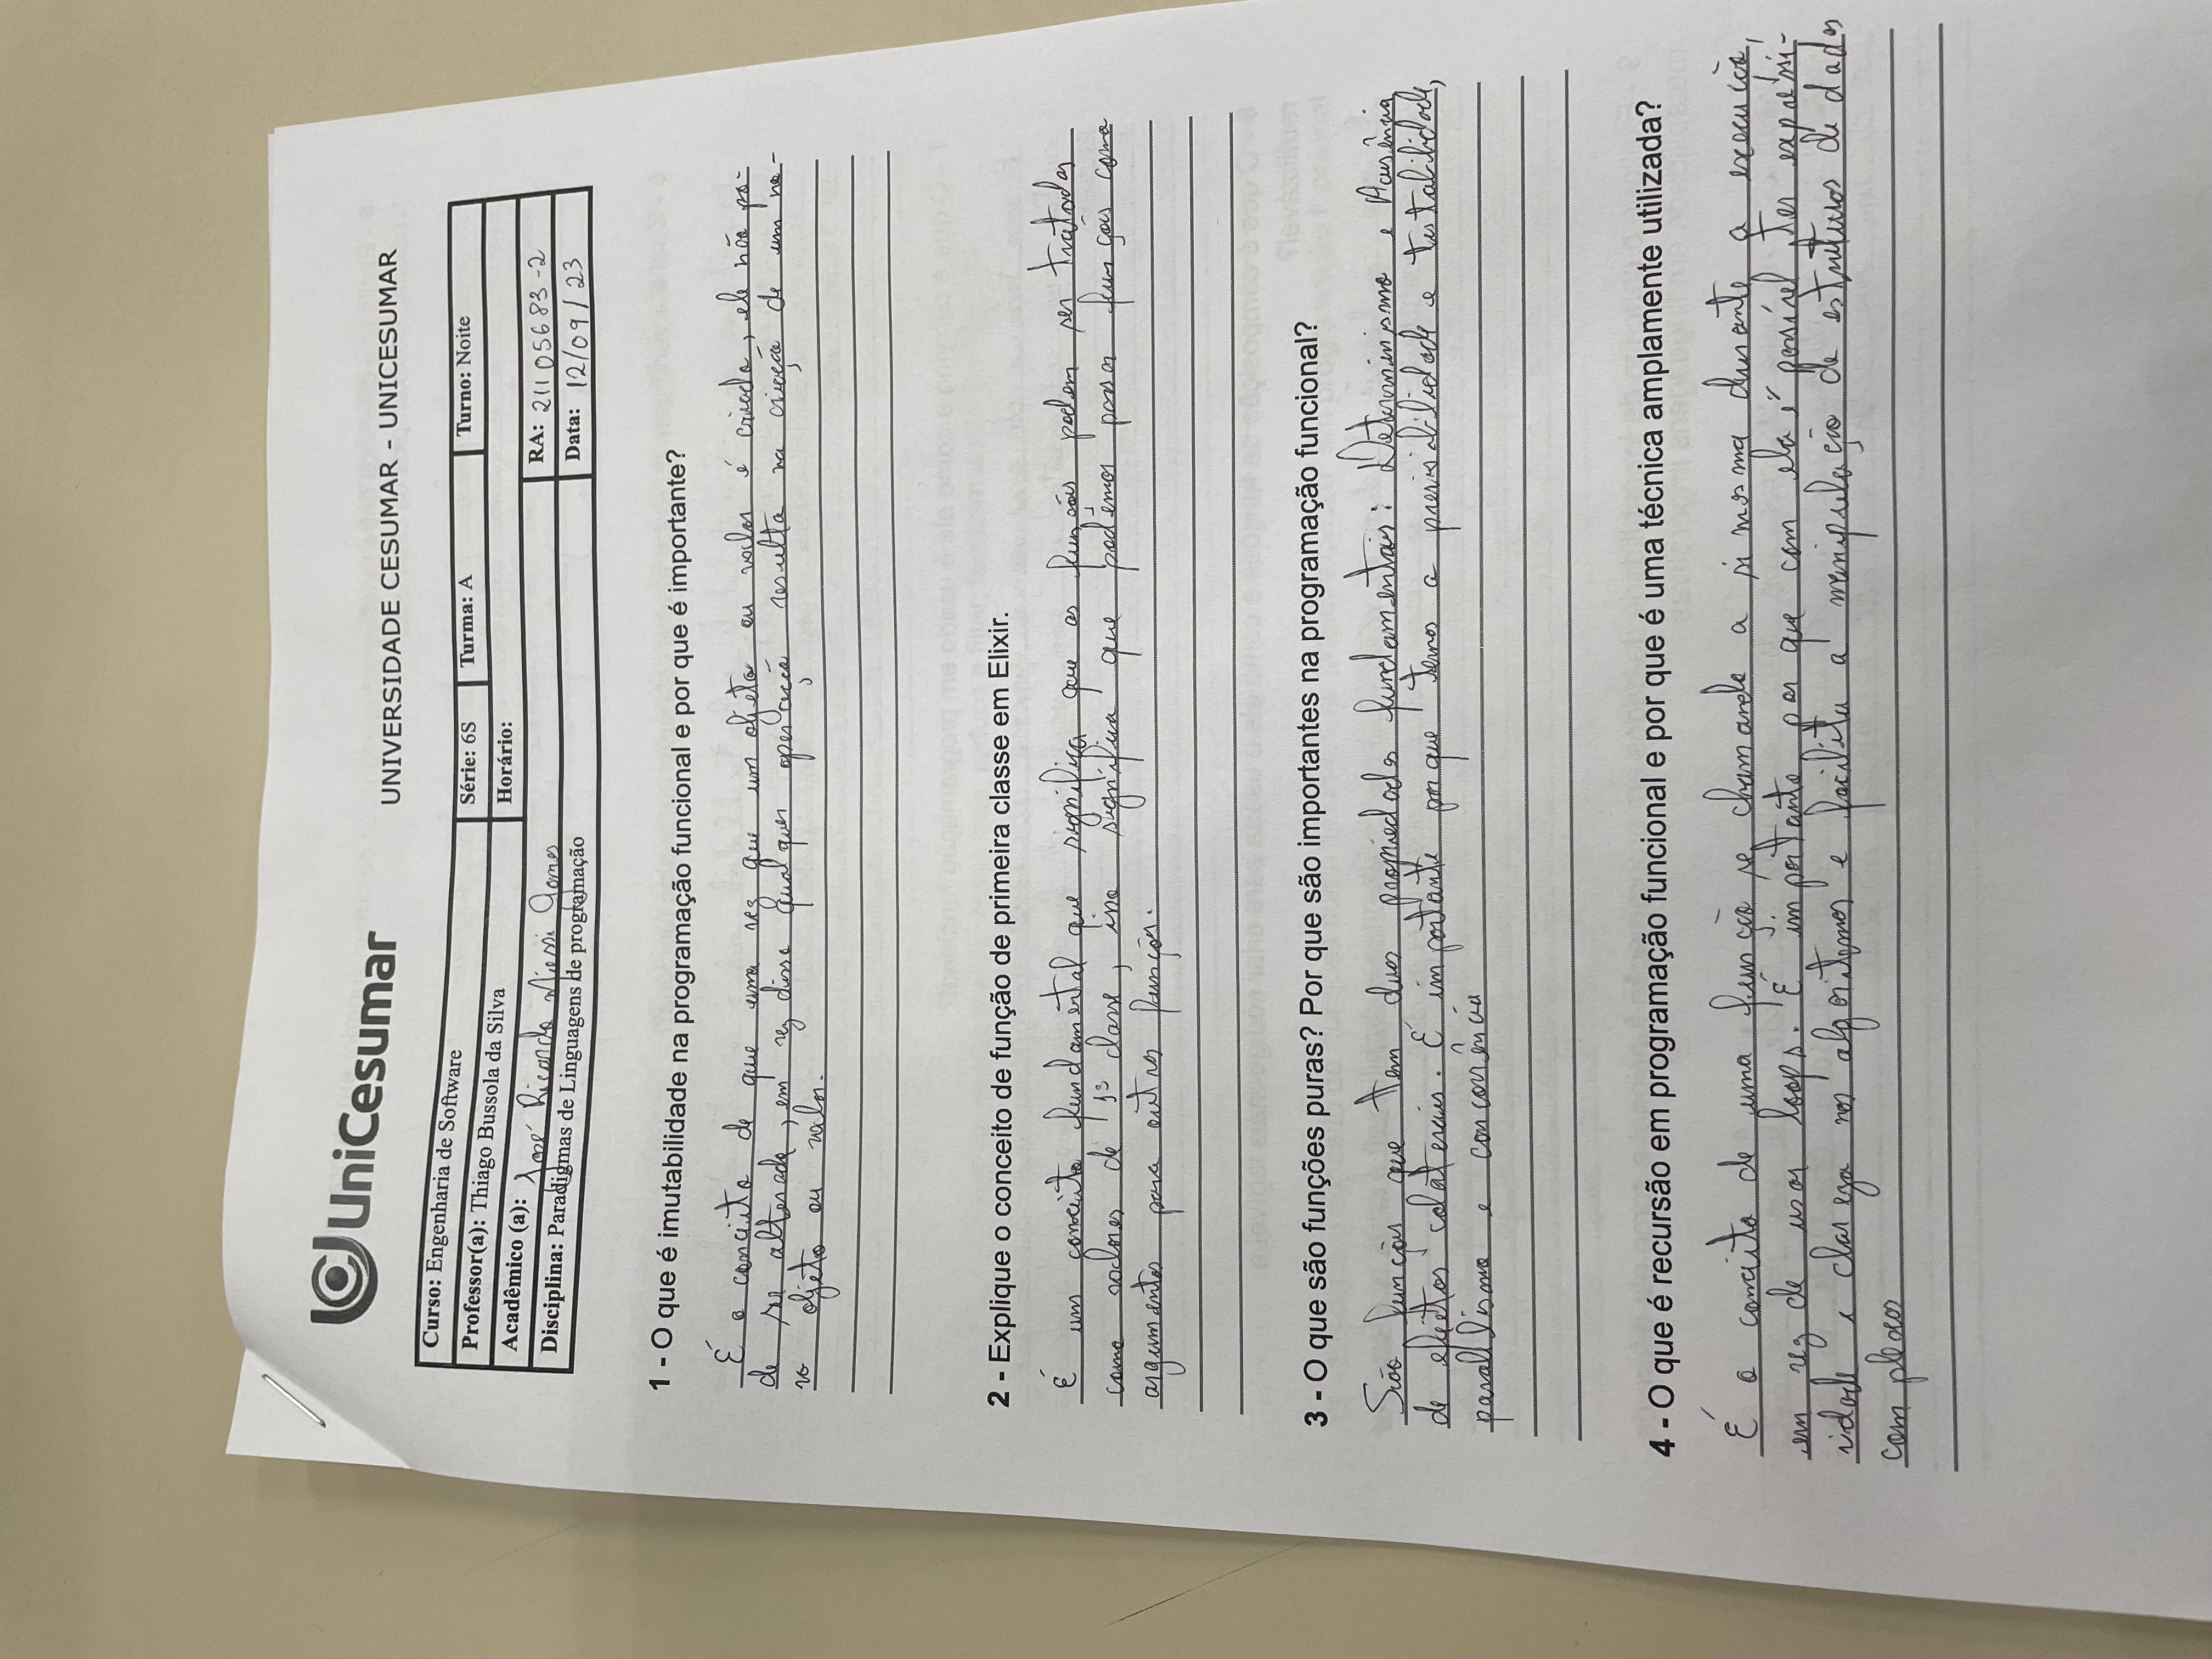 UniCesumar
UNIVERSIDADE CESUMAR - UNICESUMAR
Curso: Engenharia de Software
Série: 6S Turma: A Turno: Noite
Professor(a): Thiago Bussola da Silva
Horário:
Acadêmico (a): José Ricardo Miessi Gomes
RA: 21105683-2
Disciplina: Paradigmas de Linguagens de programação
Data: 12/09/23
1 - O que é imutabilidade na programação funcional e por que é importante?
É o conceito de que uma vez que um objeto ou valor é criado, ele não po-
de ser alterado, em vez disso qualquer operação resulta na criação de um no-
vo objeto ou valor.
2 - Explique o conceito de função de primeira classe em Elixir.
É um conceito fundamental que significa que as funções podem ser tratadas
como valores de 1º classe, isso significa que podemos passar funções como
argumentos para outras funções.
3 - O que são funções puras? Por que são importantes na programação funcional?
São funções que tem duas propriedades fundamentais: Determinismo e Ausência
de efeitos colaterais. É importante porque temos a previsibilidade e testabilidade,
paralelismo e concorrência
4 - O que é recursão em programação funcional e por que é uma técnica amplamente utilizada?
É o conceito de uma função se chamando a si mesma durante a execução,
em vez de usar loops. É importante por que com ela é possível ter expressi-
vidade e clareza nos algoritmos e facilita a manipulação de estruturas de dados
complexos